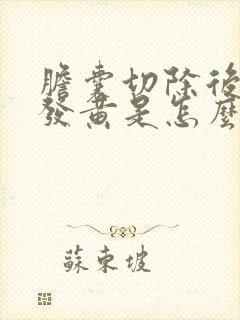 膽囊切除後
發黃是怎麼
蘇東坡